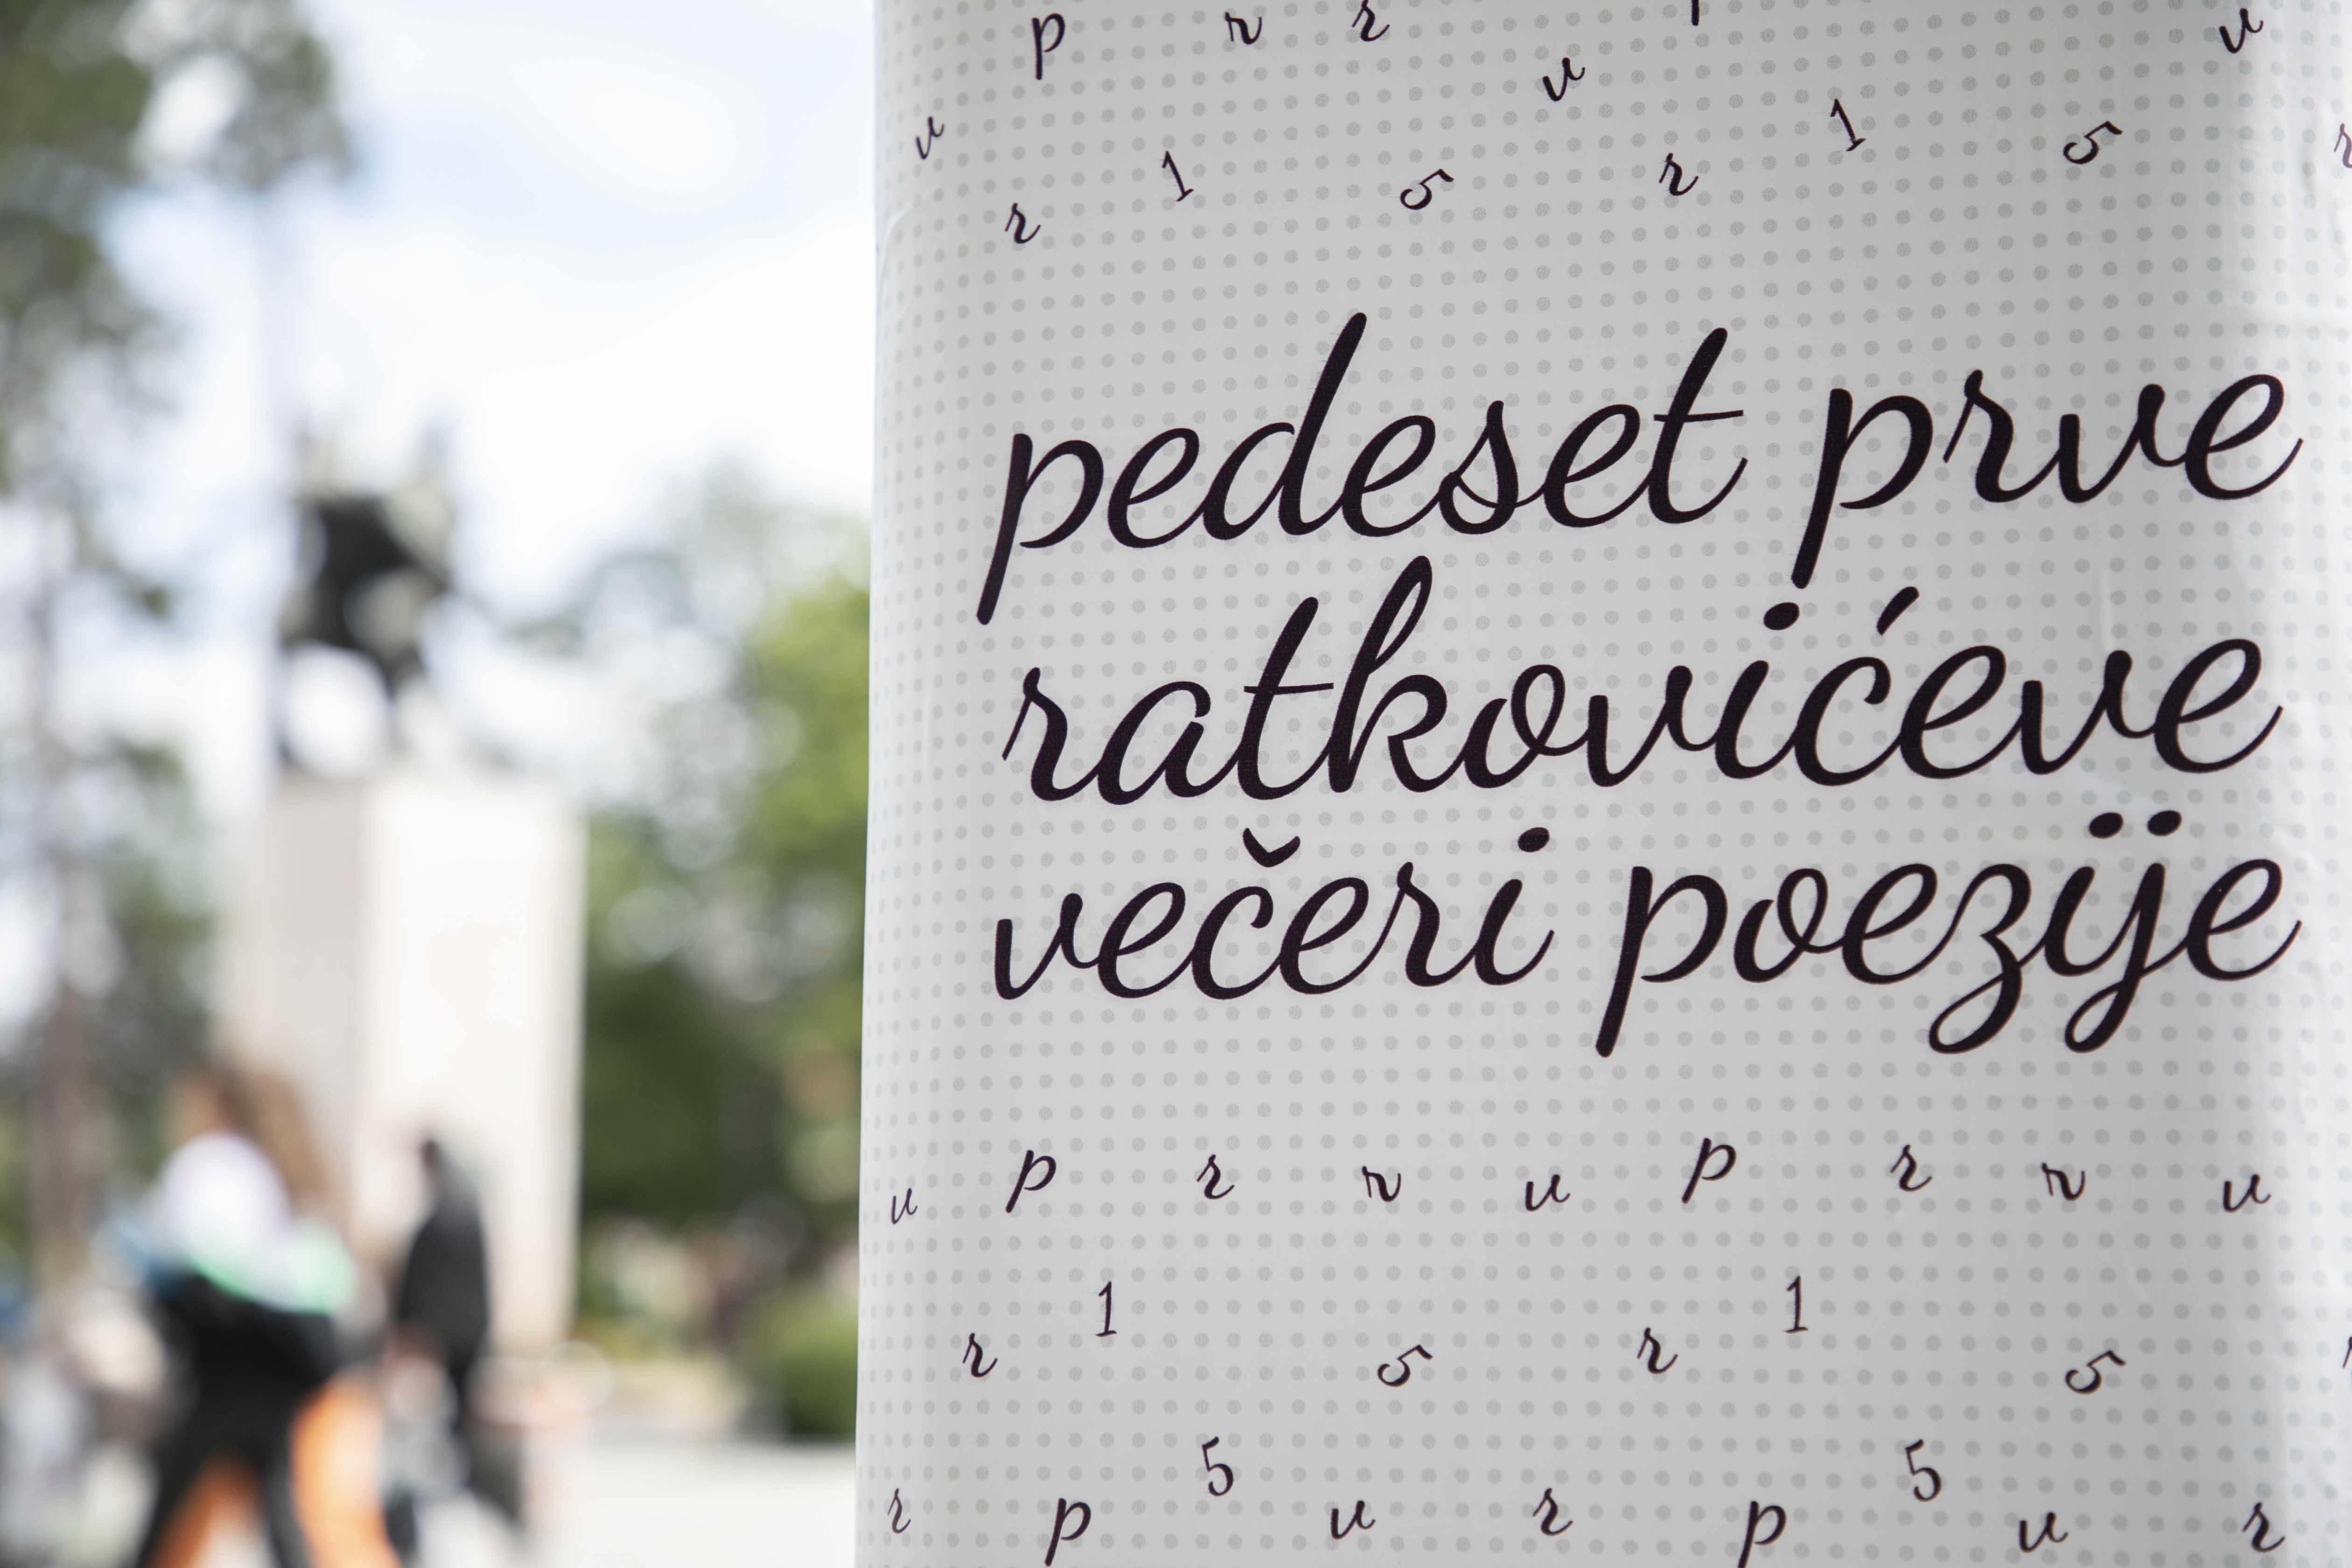 p r r v
v
v 1 5 r 1 5 r
r
pedeset prve
ratkovićeve
večeri poezije
v p r r v p r r v
1 1
r 5 r 5
5 5
r p v r p v r